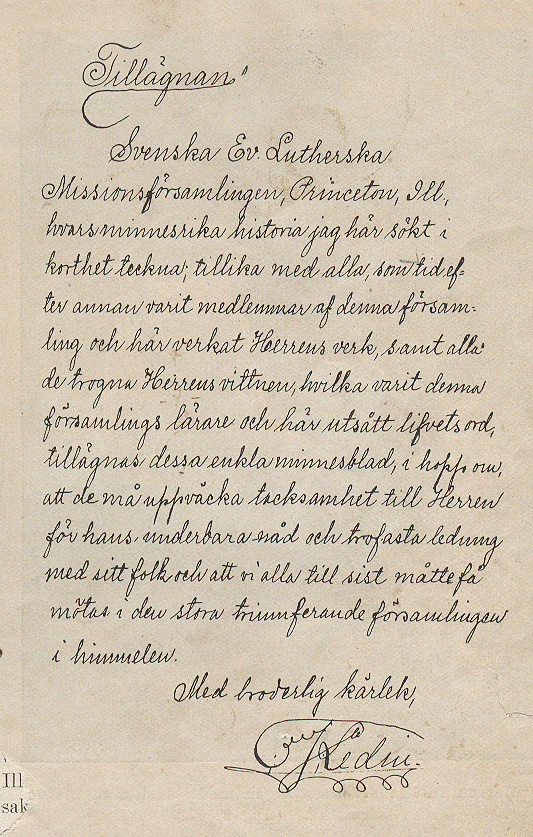 Tillägnan"
Svenska Ev. Lutherska
Missionsförsamlingen, Princeton, Ill.,
hvars minnesrika historia jag här sökt i
korthet teckna; tillika med alla, som tid ef-
ter annan varit medlemmar af denna försam-
ling och här verkat Herrens verk, samt alla
de trogna Herrens vittnen, hvilka varit denna
församlings lärare och här utsått lifvets ord,
tillägnas dessa enkla minnesblad, i hopp om,
att de må uppväcka tacksamhet till Herren
för hans underbara nåd och trofasta ledning
med sitt folk och att vi alla till sist måtte få
mötas i den stora triumferande församlingen
i himmelen.
Med broderlig kärlek,
Ledin.
Ill
sak